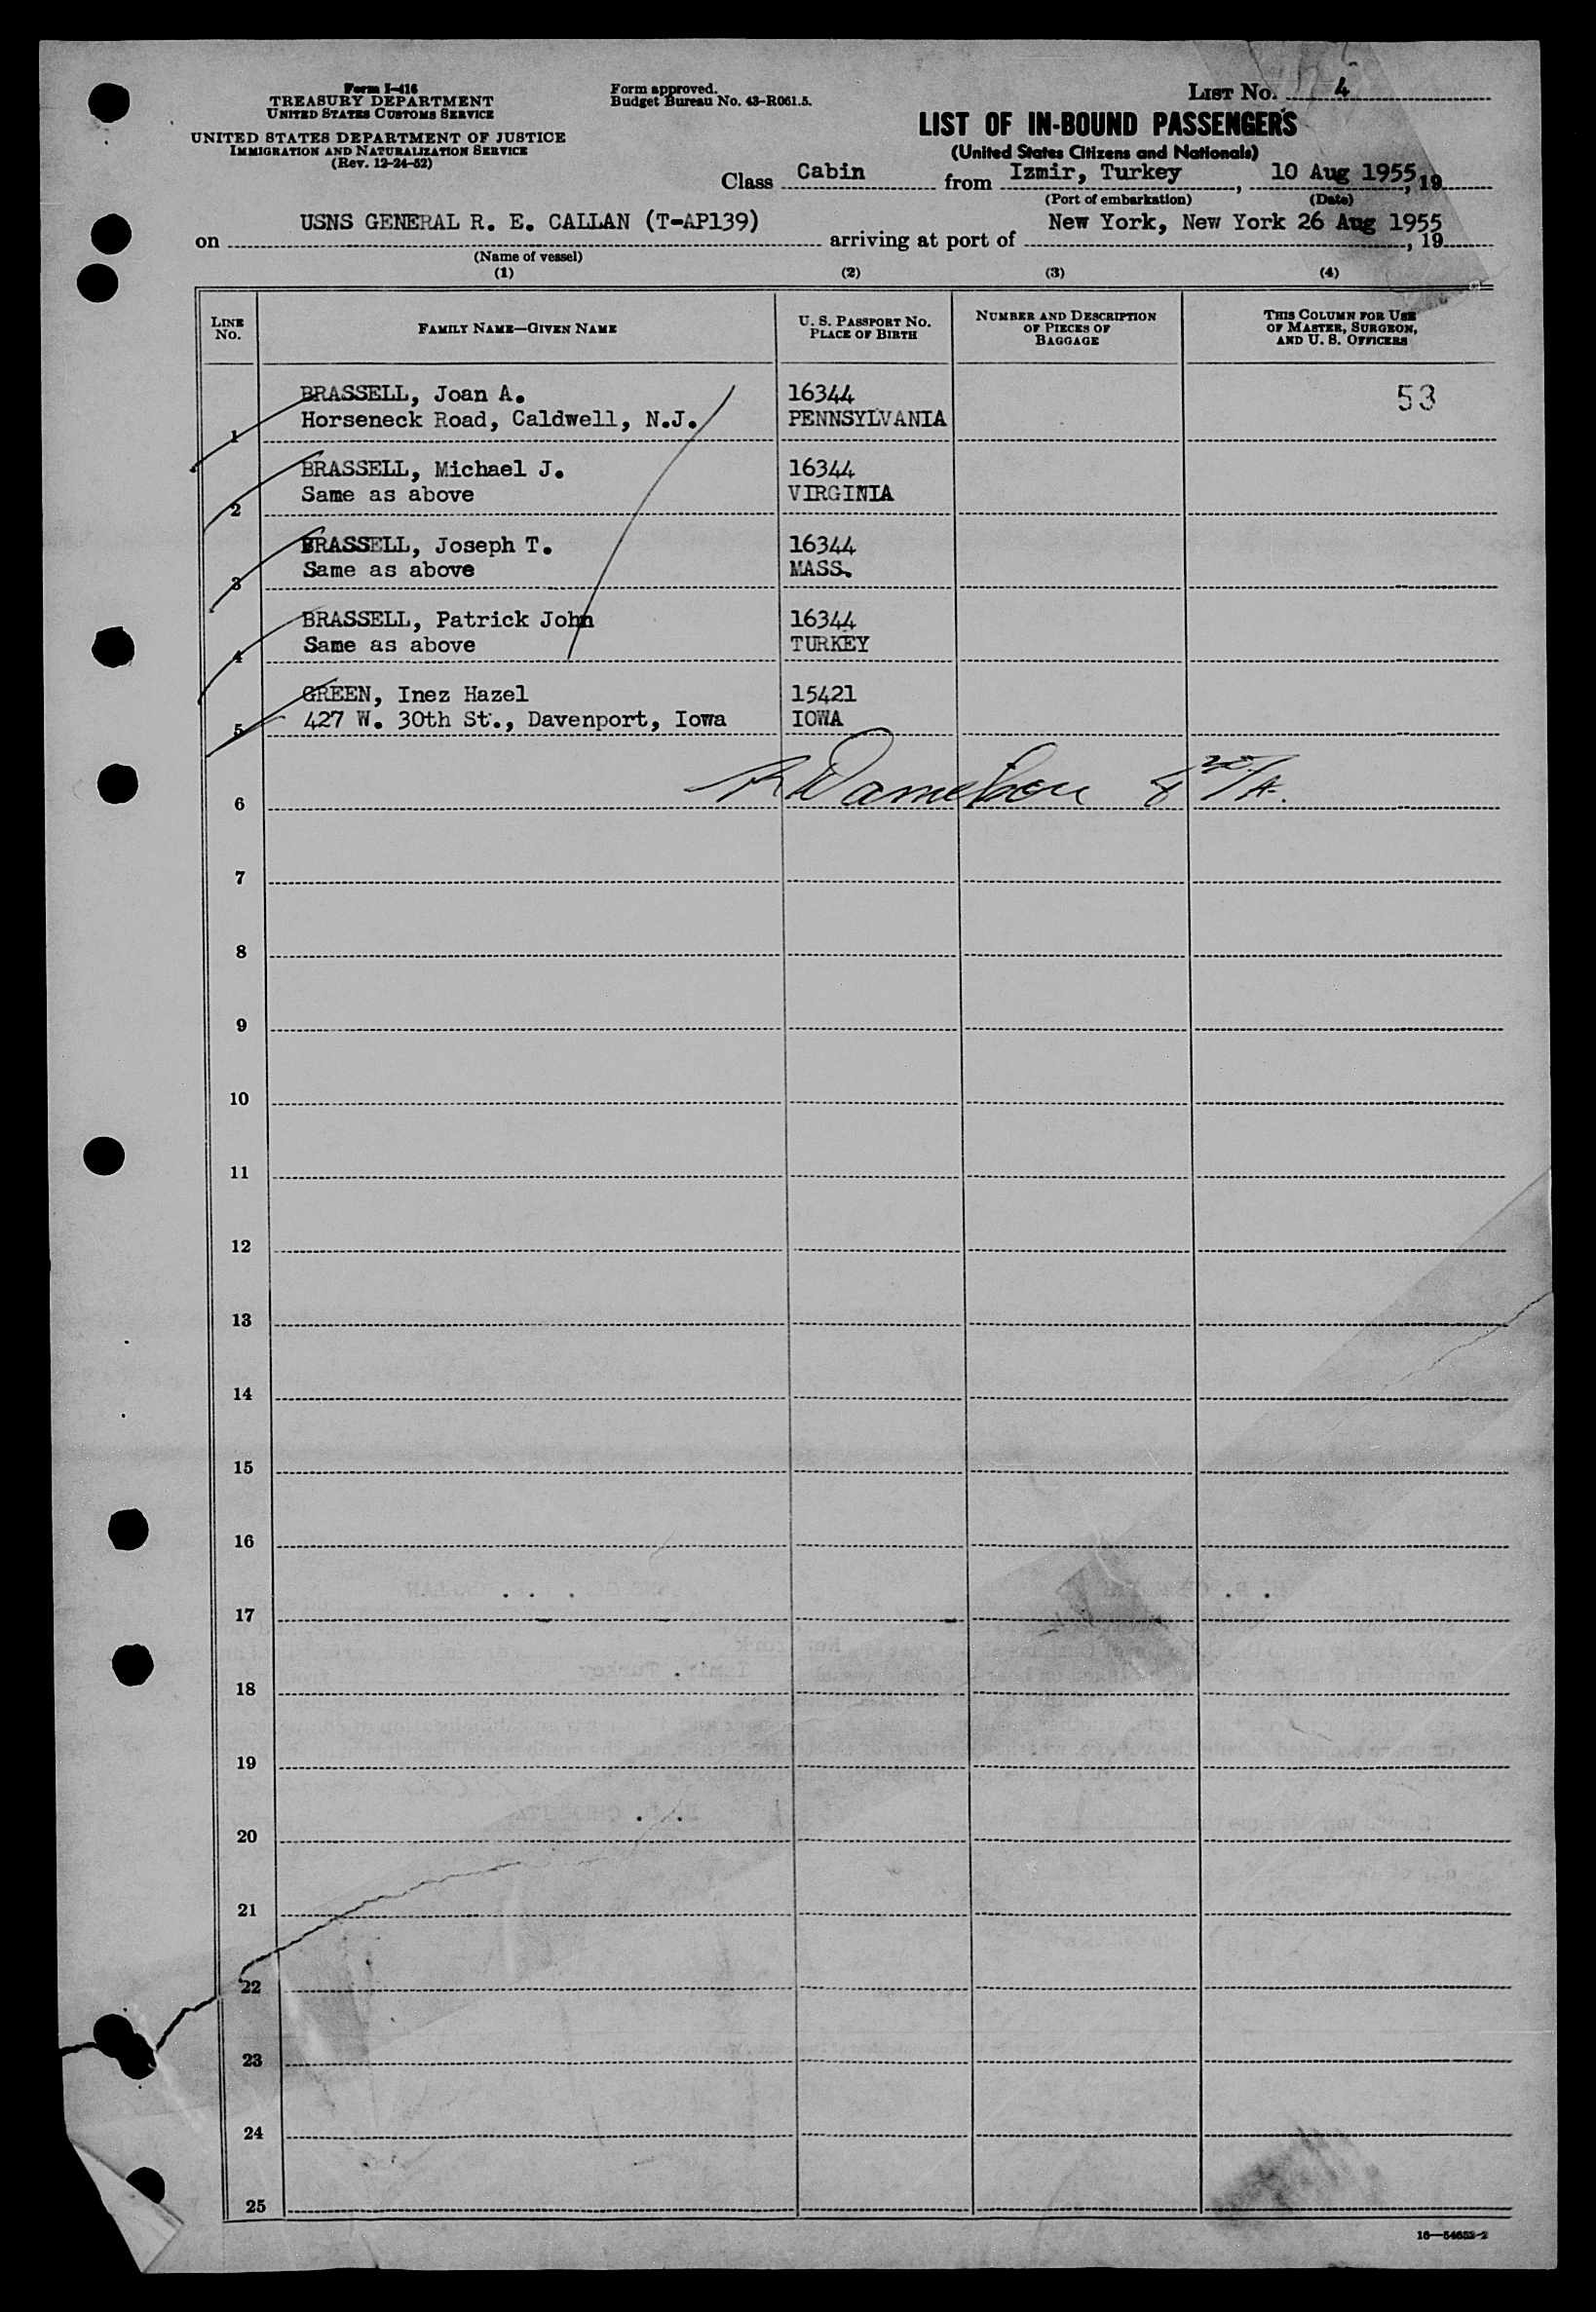 Form I-416
TREASURY DEPARTMENT
UNITED STATES CUSTOMS SERVICE
UNITED STATES DEPARTMENT OF JUSTICE
IMMIGRATION AND NATURALIZATION SERVICE
(Rev. 12-24-52)
Form approved.
Budget Bureau No. 43-R061.5.
LIST NO. 4
LIST OF IN-BOUND PASSENGERS
(United States Citizens and Nationals)
Class Cabin from Izmir, Turkey, 10 Aug 1955, 19
(Port of embarkation) (Date)
on USNS GENERAL R. E. CALLAN (T-AP139) arriving at port of New York, New York 26 Aug 1955, 19
(Name of vessel)
(1) (2) (3) (4)
LINE NO. FAMILY NAME—GIVEN NAME U. S. PASSPORT NO. PLACE OF BIRTH NUMBER AND DESCRIPTION OF PIECES OF BAGGAGE THIS COLUMN FOR USE OF MASTER, SURGEON, AND U. S. OFFICERS
BRASSELL, Joan A. 16344 53
1 Horseneck Road, Caldwell, N.J. PENNSYLVANIA
BRASSELL, Michael J. 16344
2 Same as above VIRGINIA
BRASSELL, Joseph T. 16344
3 Same as above MASS.
BRASSELL, Patrick John 16344
4 Same as above TURKEY
GREEN, Inez Hazel 15421
5 427 W. 30th St., Davenport, Iowa IOWA
6
7
8
9
10
11
12
13
14
15
16
17
18
19
20
21
22
23
24
25
16—54652-2